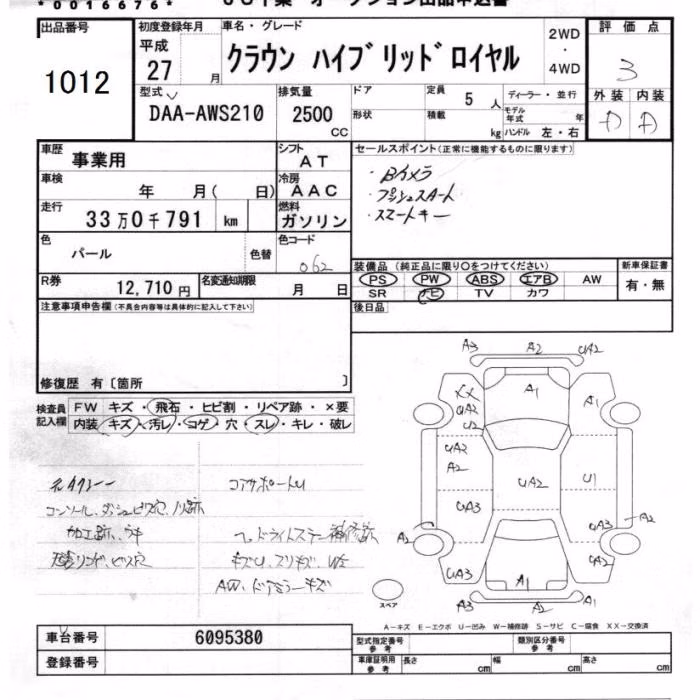 *0016676*
出品番号 初度登録年月 車名・グレード 評価点
1012 平成 27 月 クラウン ハイブリッドロイヤル 2WD・4WD 3
型式 排気量 ドア 定員 5 人 ディーラー・並行 外装 内装
DAA-AWS210 2500 CC 形状 積載 kg モデル年式 年 ハンドル 左・右 D D
車歴 事業用 シフト AT セールスポイント(正常に機能するものに限ります)
車検 年 月( 日) 冷房 AAC ・Bカメラ
走行 33万0千791 km 燃料 ガソリン ・プッシュスタート
・スマートキー
色 パール 色替 色コード 062
装備品 (純正品に限り○をつけてください) 新車保証書
R券 12,710円 名変通知期限 月 日 PS PW ABS エアB AW 有・無
SR ナビ TV カワ
注意事項申告欄(不具合内容等は具体的に記入して下さい) 後日品
修復歴 有〔箇所 〕
検査員記入欄 FW キズ・飛石・ヒビ割・リペア跡・×要
内装 キズ・汚レ・コゲ・穴・スレ・キレ・破レ
元タクシー コアサポートU
コンソール、ダッシュビス穴、ノリ跡
加工跡、ウキ ヘッドライトステー補修跡
天張リンド、ビス穴 キズU、スリキズ、UE
AW、ドアミラーキズ
A3 A2 UA2
XX A1 A1
UA2
U2
UA2 UA2 U1
A2
UA3 UA3 A2
A2
UA3 A1 UA3
A3 A2 A1
スペア
A-キズ E-エクボ U-凹み W-補修跡 S-サビ C-腐食 XX-交換済
車台番号 6095380 型式指定番号 参考 類別区分番号 参考
登録番号 車庫証明用 参考 長さ cm 幅 cm 高さ cm